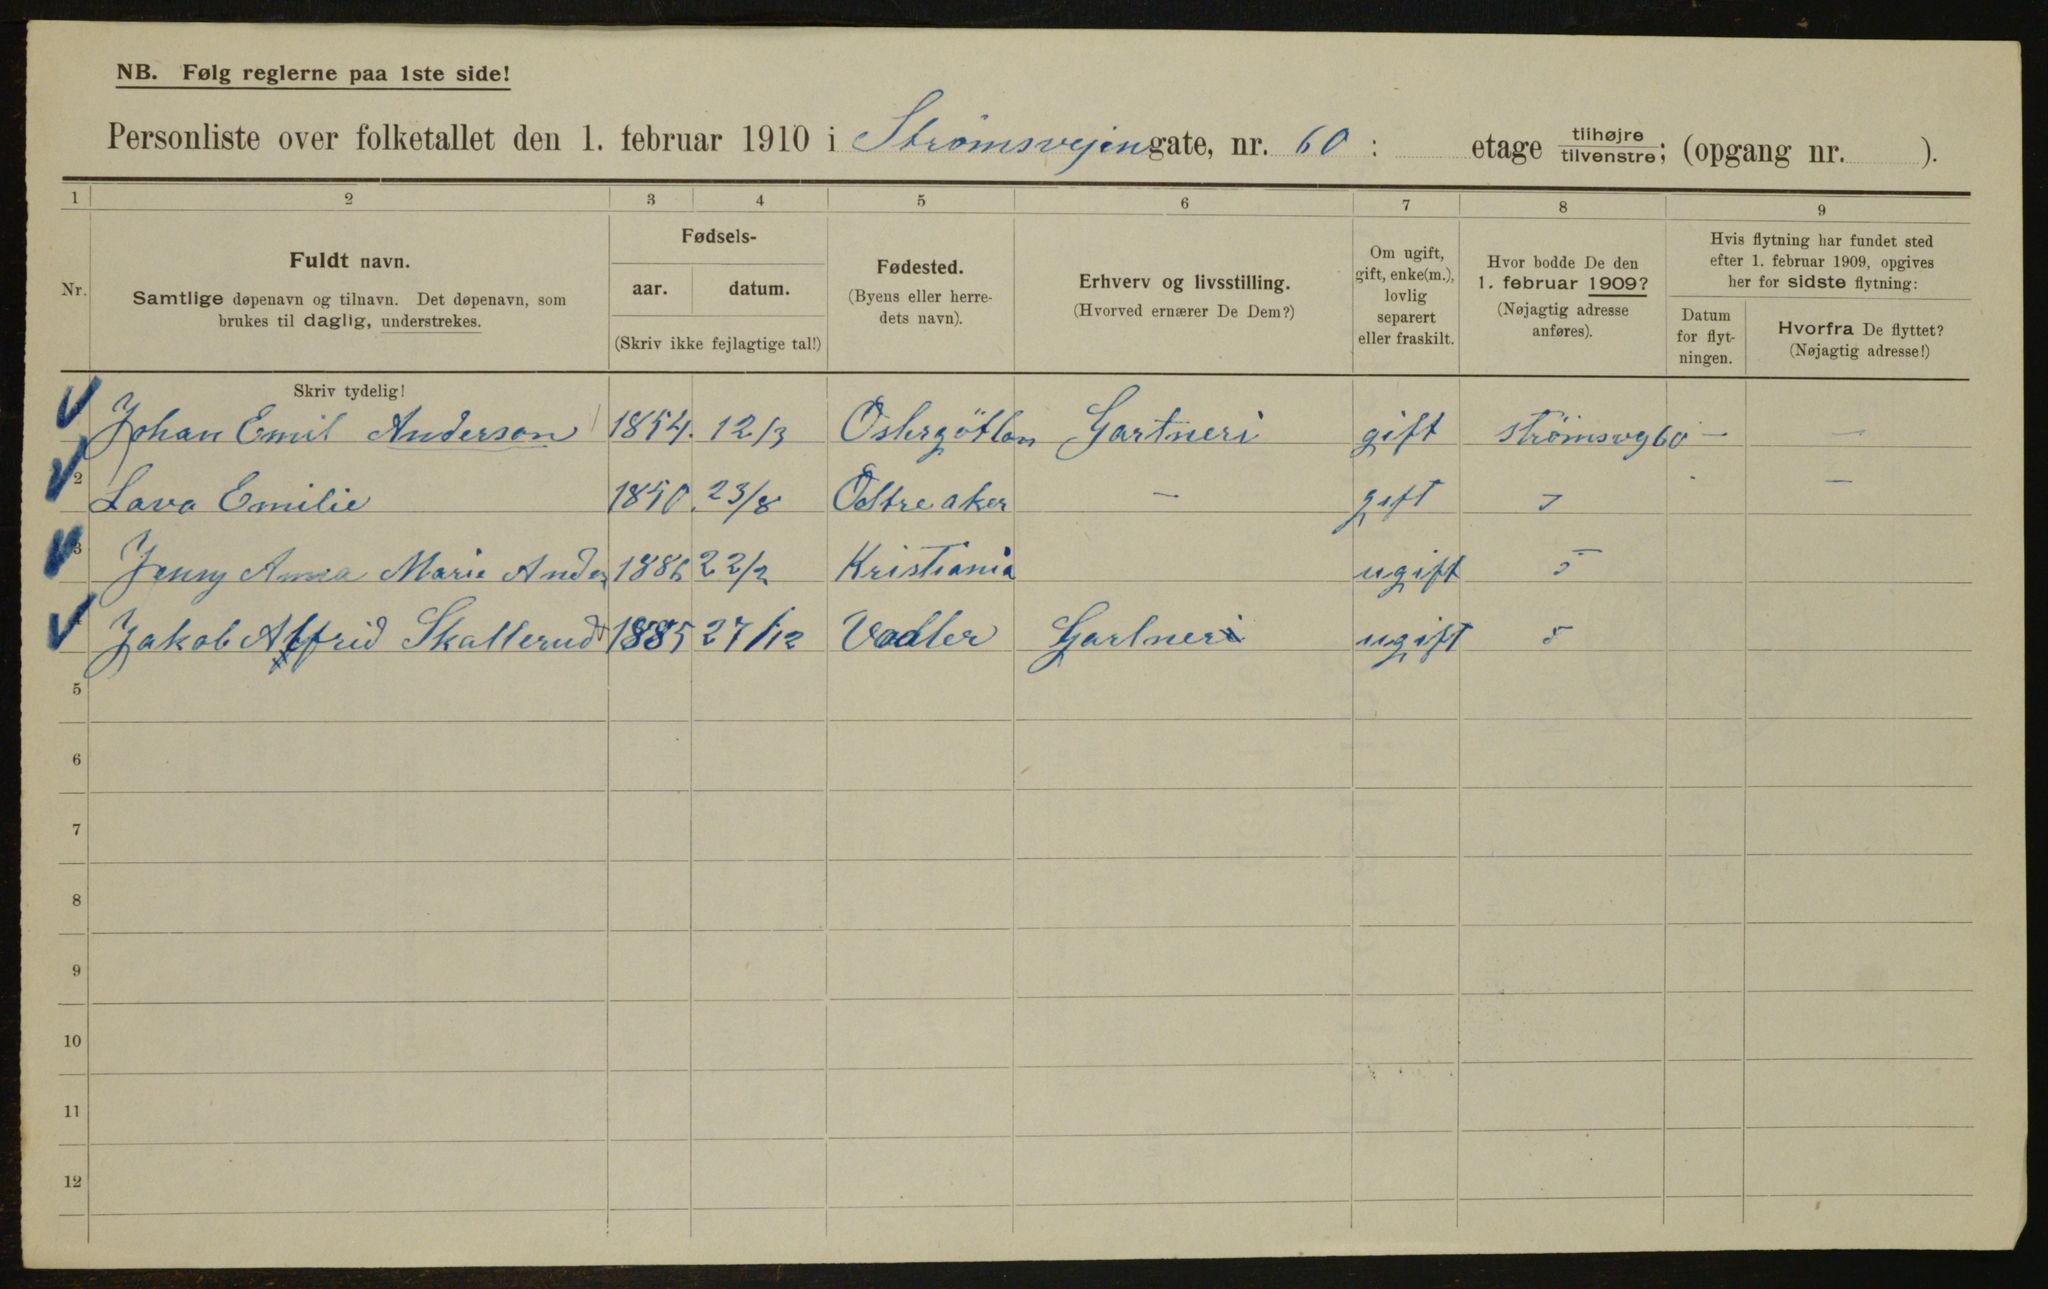 NB. Følg reglerne paa 1ste side!
Personliste over folketallet den 1. februar 1910 i Strømsvejengate, nr. 60 : etage tilhøjre / tilvenstre; (opgang nr. ).
1 2 3 4 5 6 7 8 9
Nr. Fuldt navn. Samtlige døpenavn og tilnavn. Det døpenavn, som brukes til daglig, understrekes.
Fødsels- aar. datum. (Skriv ikke fejlagtige tal!)
Fødested. (Byens eller herredets navn).
Erhverv og livsstilling. (Hvorved ernærer De Dem?)
Om ugift, gift, enke(m.), lovlig separert eller fraskilt.
Hvor bodde De den 1. februar 1909? (Nøjagtig adresse anføres).
Hvis flytning har fundet sted efter 1. februar 1909, opgives her for sidste flytning:
Datum for flytningen. Hvorfra De flyttet? (Nøjagtig adresse!)
Skriv tydelig!
Johan Emil Anderson 1854. 12/3 Gartneri gift Strømsvg 60 — —
2 Lava Emilie 1850. 23/8 Östre aker — gift —
3 Jenny Anna Marie Ander 1886 22/2 Kristiania ugift
4 Jakob Alfrid Skallerud 1885 27/12 Vadler Gartneri ugift
5
6
7
8
9
10
11
12